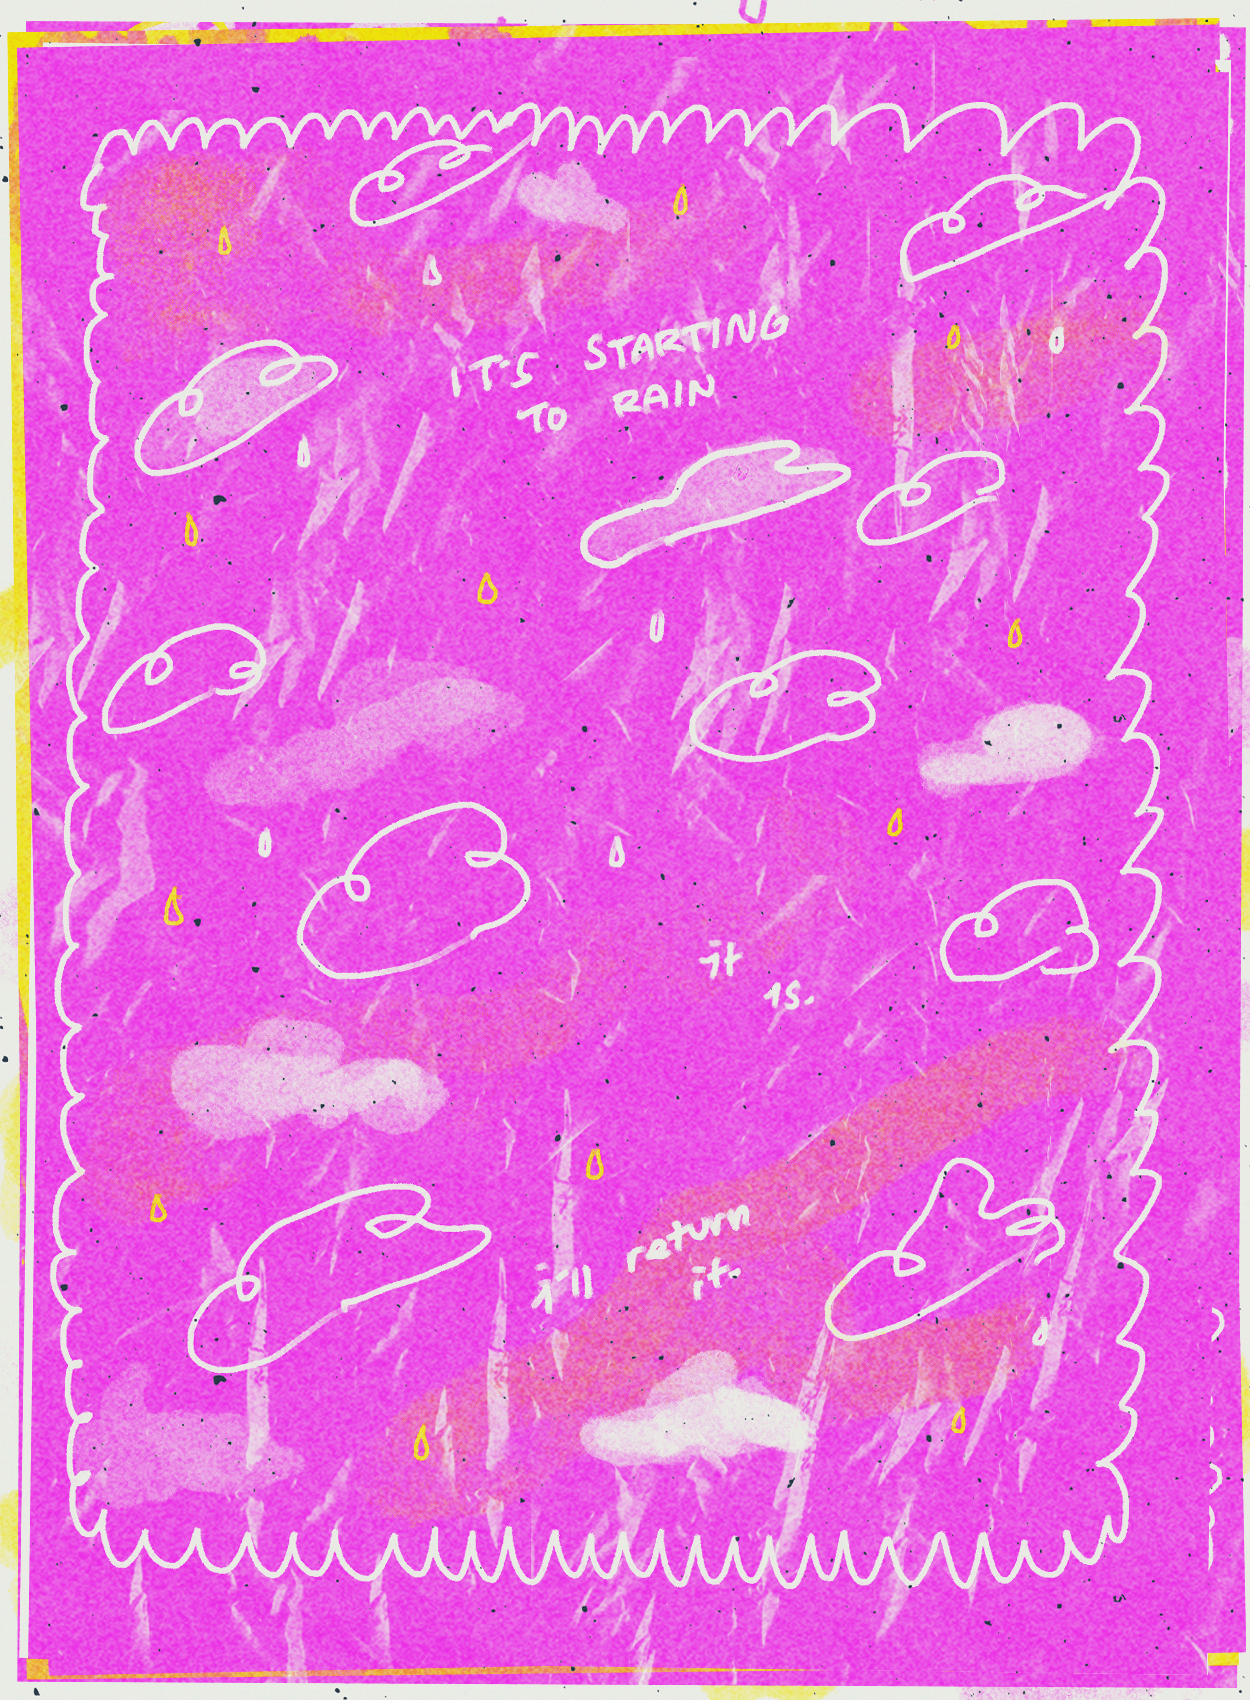 IT'S STARTING
TO RAIN
it
is.
i'll return
it.